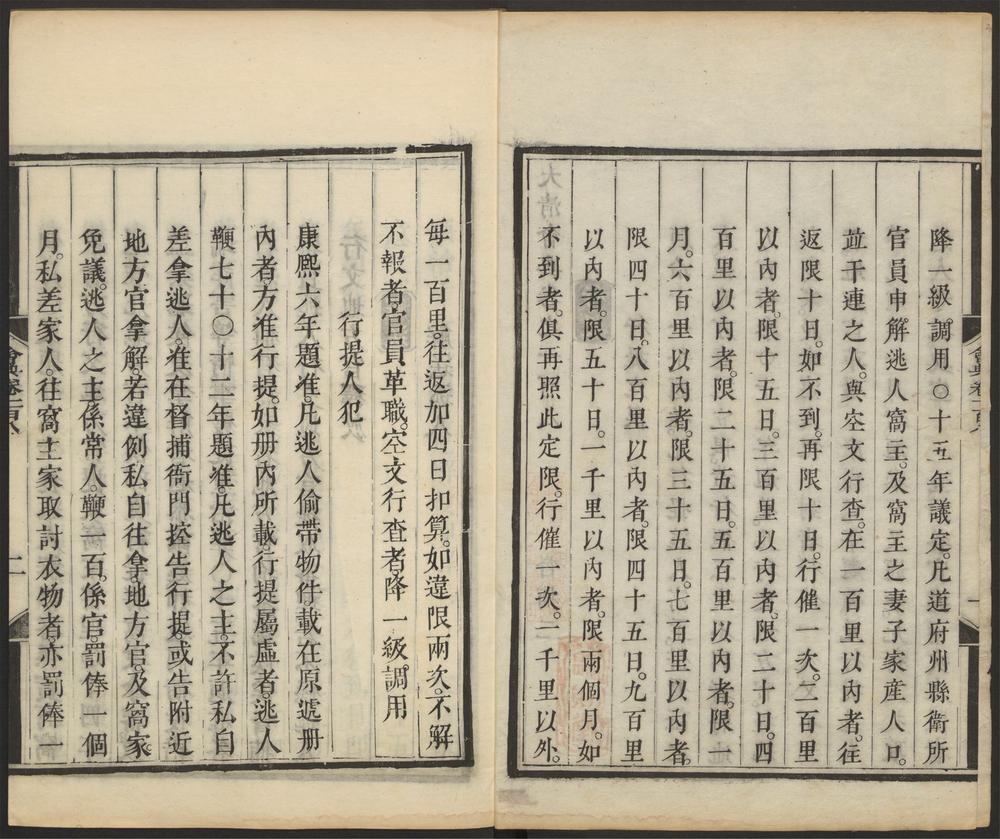 降一級調用○十五年議定凡道府州縣衛所
官員申解逃人窩主及窩主之妻子家産人口
並干連之人與空文行查在一百里以內者往
返限十日如不到再限十日行催一次二百里
以內者限十五日三百里以內者限二十日四
百里以內者限二十五日五百里以內者限一
月六百里以內者限三十五日七百里以內者
限四十日八百里以內者限四十五日九百里
以內者限五十日一千里以內者限兩個月如
不到者俱再照此定限行催一次一千里以外
每一百里往返加四日扣算如違限兩次不解
不報者官員革職空文行查者降一級調用
行提人犯
康熙六年題准凡逃人偷帶物件載在原遞册
內者方准行提如册內所載行提屬虛者逃人
鞭七十○十二年題准凡逃人之主不許私自
差拿逃人准在督捕衙門控告行提或告附近
地方官拿解若違例私自往拿地方官及窩家
免議逃人之主係常人鞭一百係官罰俸一個
月私差家人往窩主家取討衣物者亦罰俸一
會典卷一百八
一
二